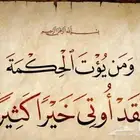 بسم الله الرحمن الرحيم
وَمَن يُؤْتَ الحِكْمَةَ
فَقَد أُوتِيَ خَيْرًا كَثِيرًا